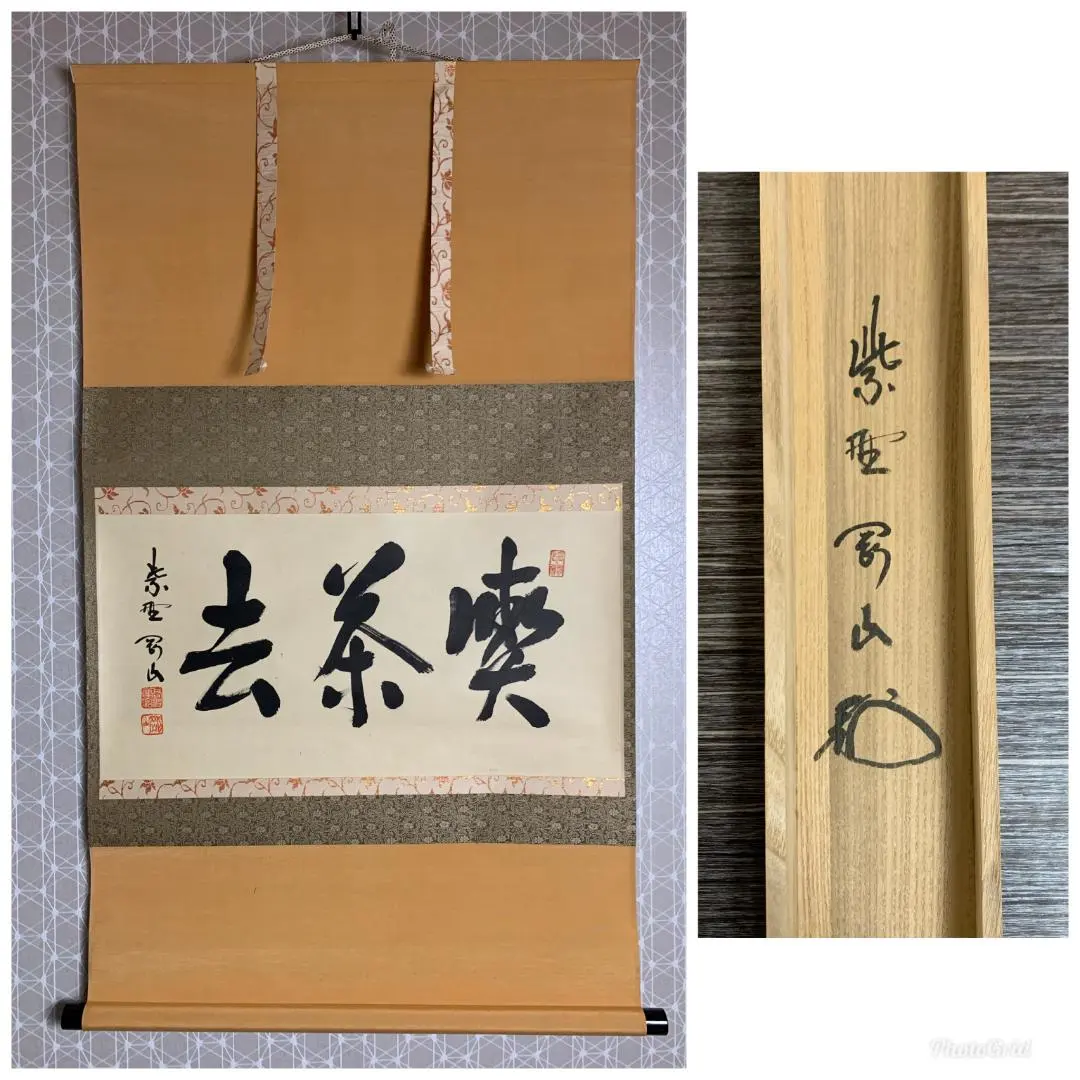 喫茶去
紫野 剛山
紫野 剛山
PhotoGrid